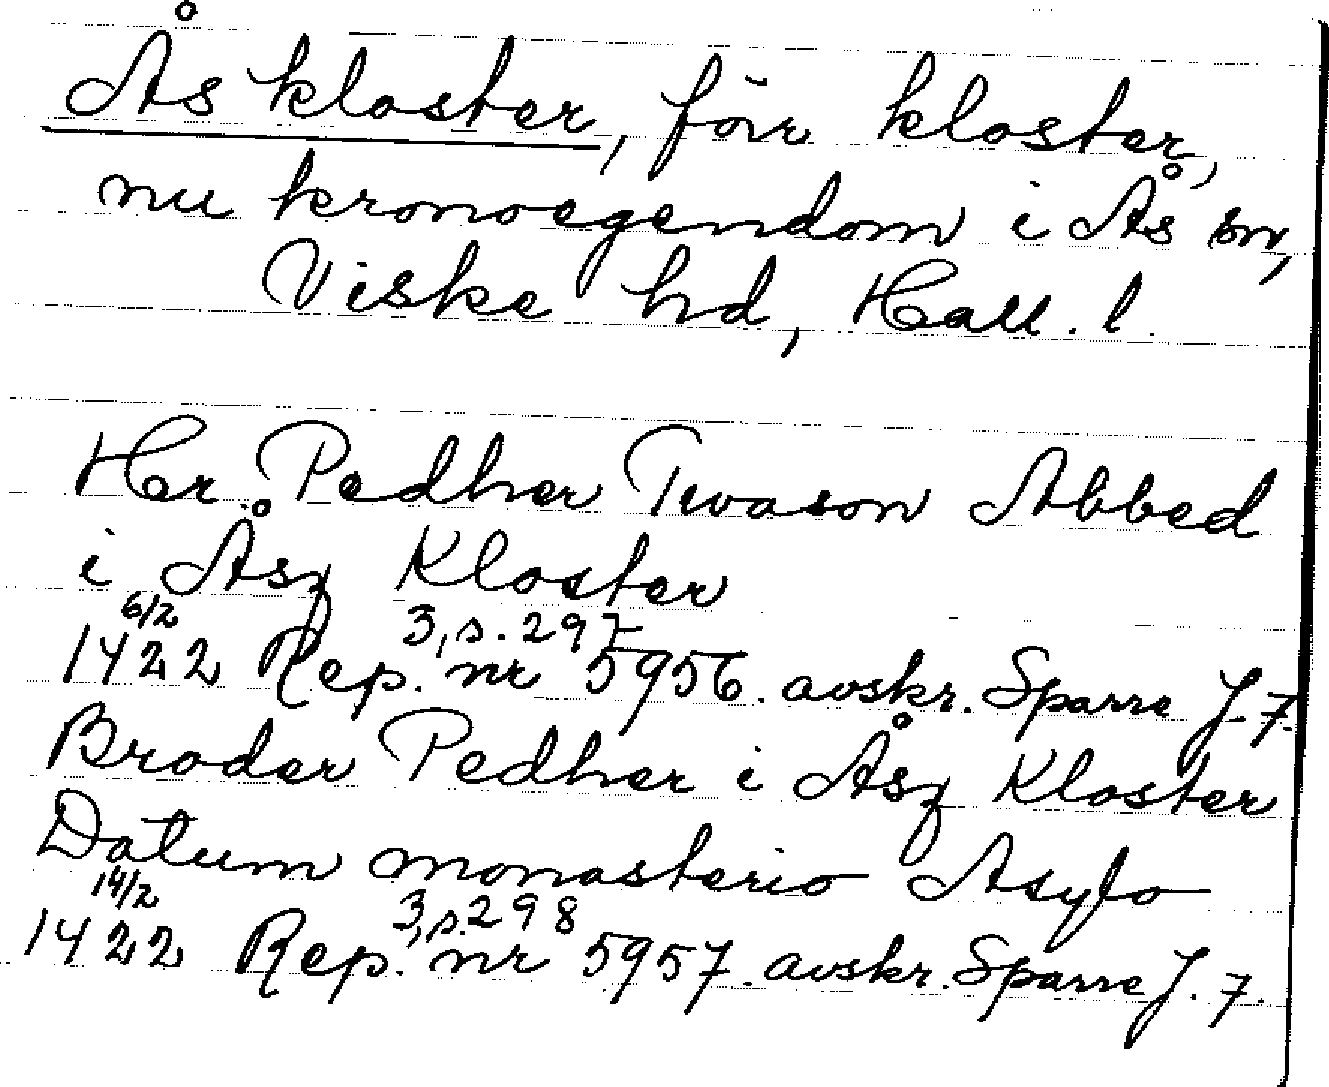 Ås kloster, förr kloster,
nu kronoegendom i Ås sn,
Viske hd, Hall. l.
Her Pedher Twason Abbed
i Åsz Kloster
6/2 3, s. 297
1422 Rep. nr 5956. avskr. Sparre J. 7.
Broder Pedher i Åsz Kloster
Datum monasterio Asylo
14/2 3, s. 298
1422 Rep. nr 5957. avskr. Sparre J. 7.